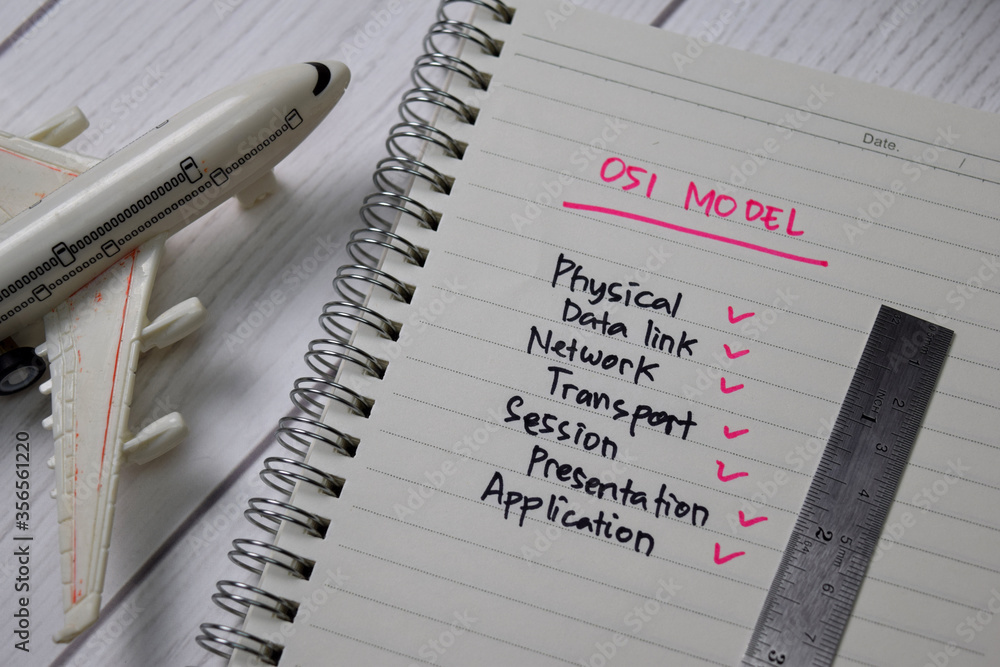 Date.
OSI MODEL
Physical
Data link
Network
Transport
Session
Presentation
Application
INCH
1
2
3
4
5mm
6
7
1
2
3
Adobe Stock | #356561220
Adobe Stock